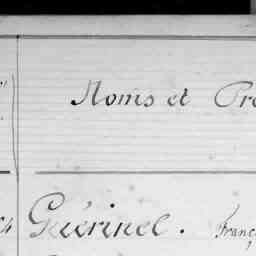 Noms et Pr
4 Guérinel. Franç